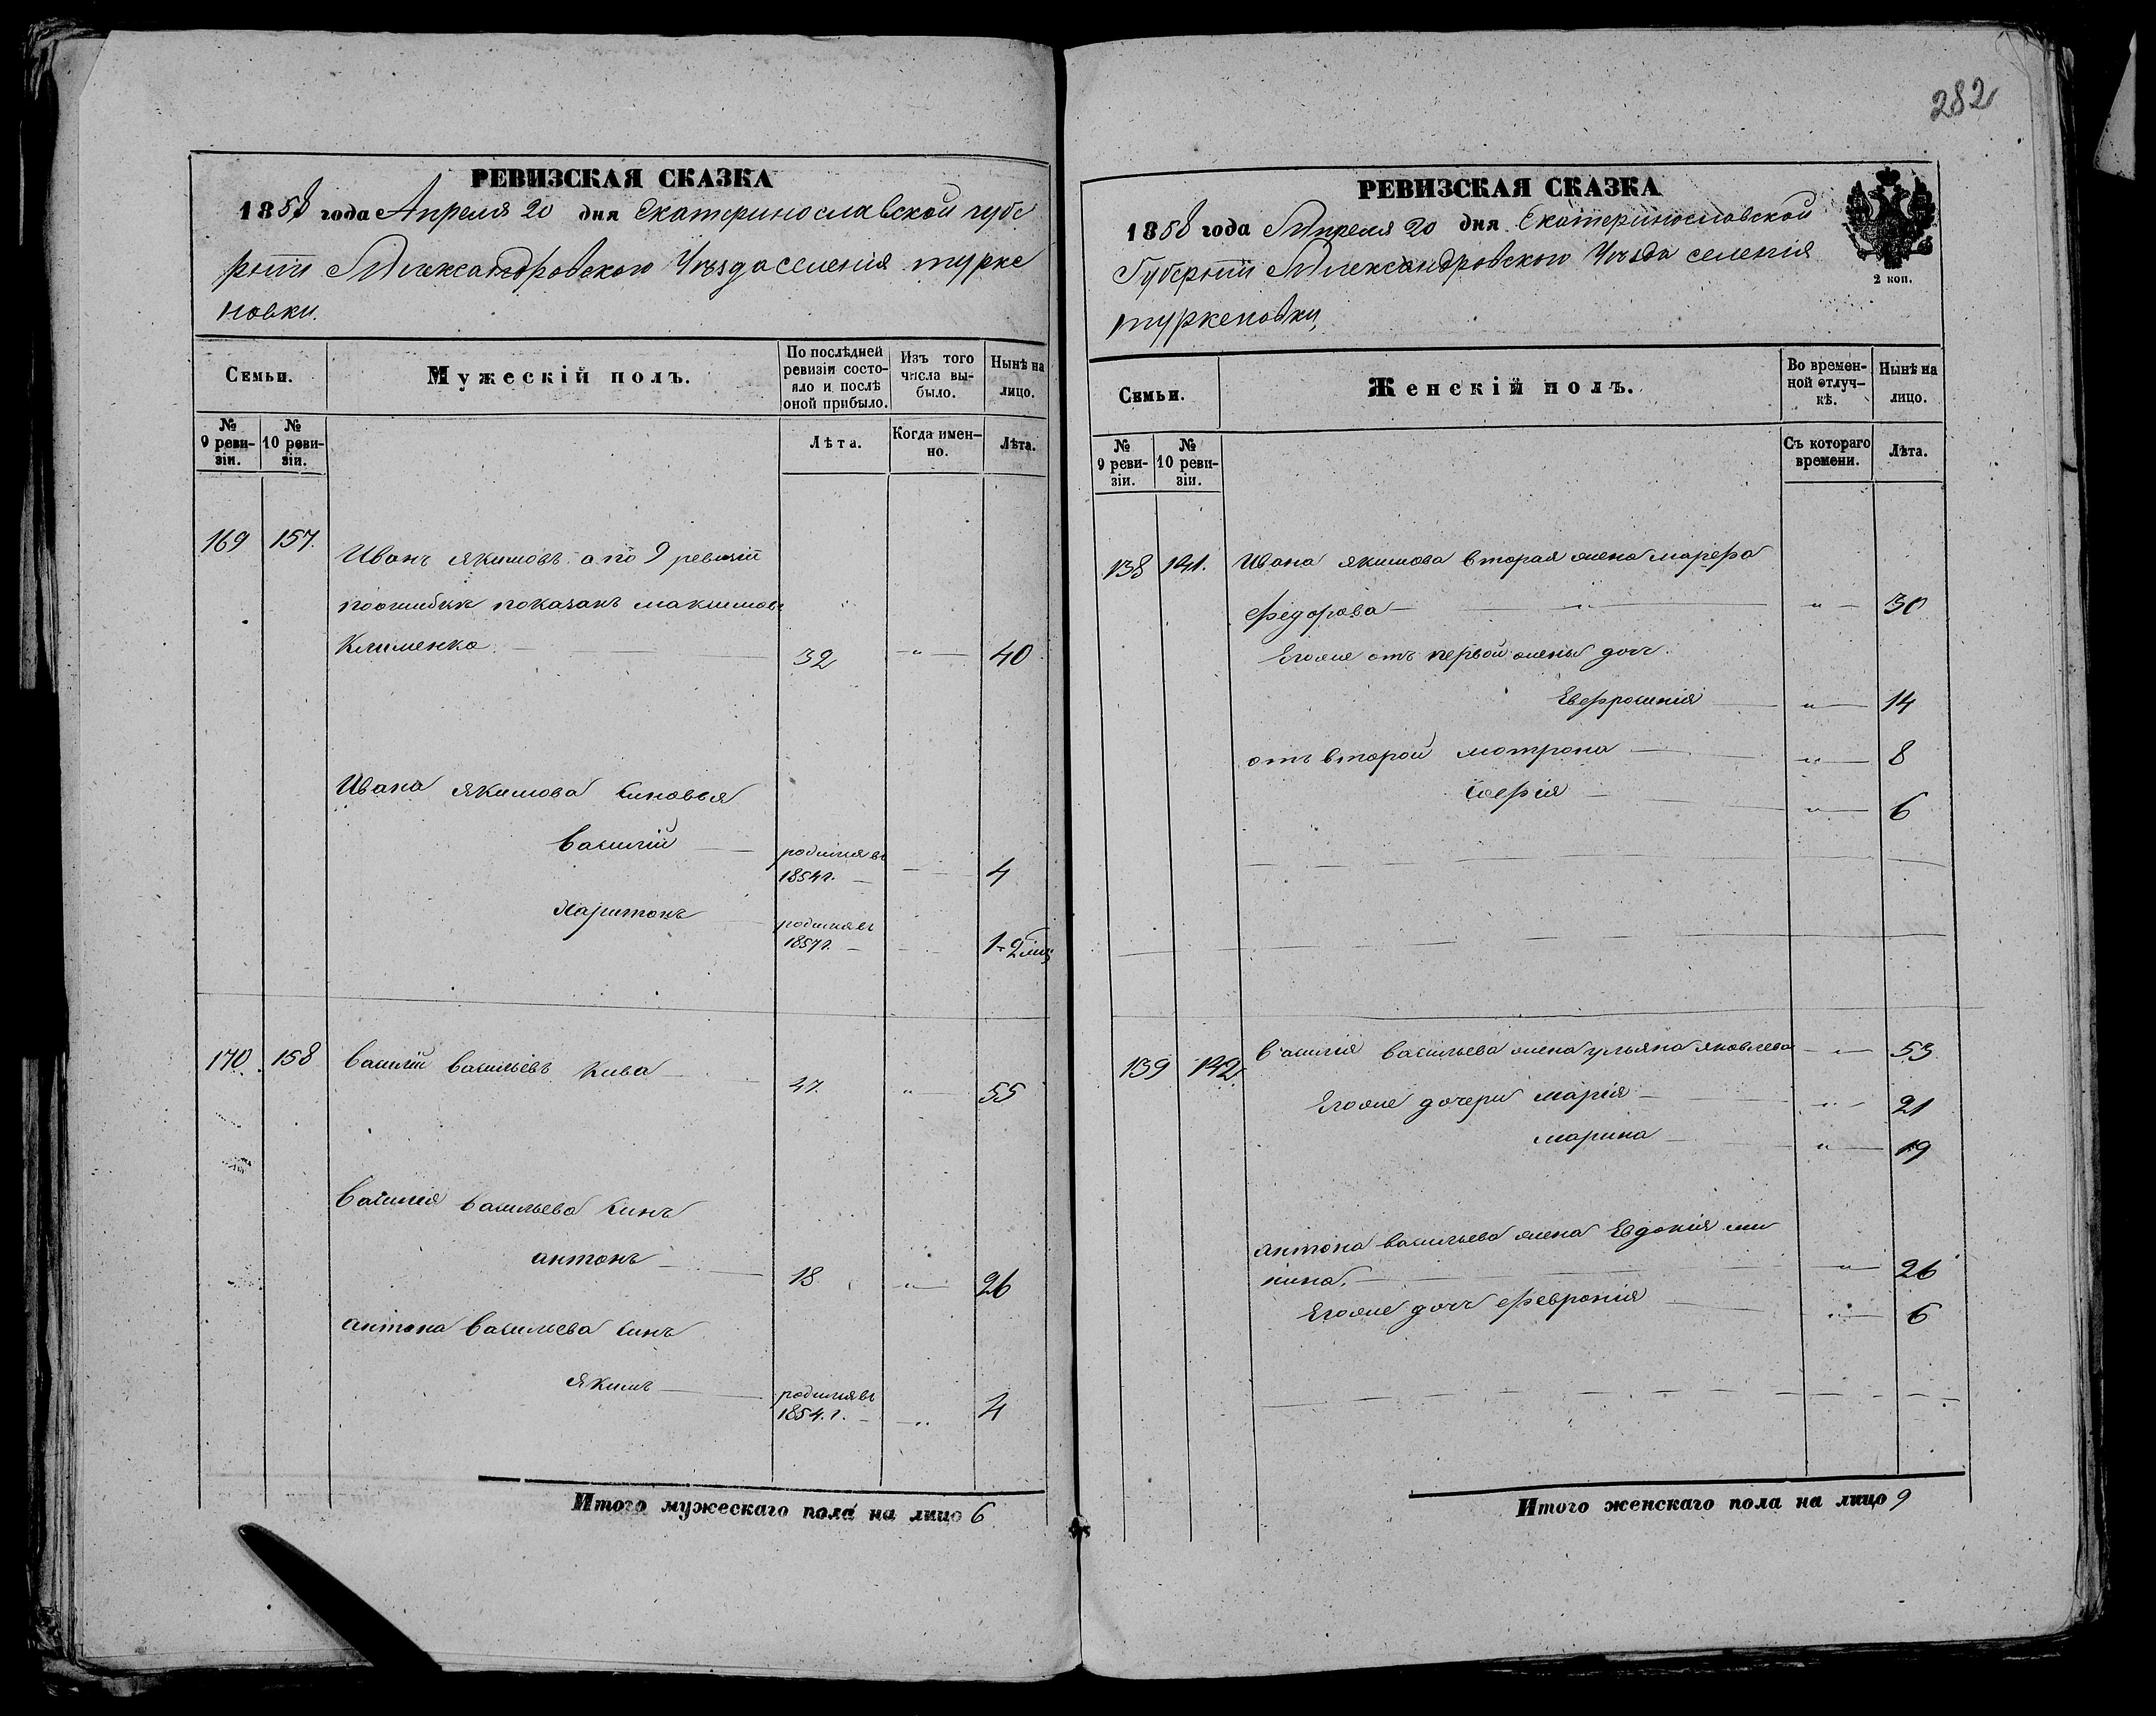 282
РЕВИЗСКАЯ СКАЗКА
1858 года Апреля 20 дня Екатеринославской губе
рніи Александровскаго Уезда селенія турке
новки.
Семьи.
Мужескій полъ.
По послѣдней ревизіи состояло и послѣ оной прибыло.
Изъ того числа выбыло.
Нынѣ на лицо.
№ 9 ревизіи.
№ 10 ревизіи.
Лѣта.
Когда именно.
Лѣта.
169 157. Иванъ якимовъ а по 9 ревизіи
поошибкѣ показанъ максимовъ
Клименко 32 " 40
Ивана якимова синовья
василій родился въ 1854 г. 4
Харитонъ родился въ 1857 г. 1-2 мец
170 158 василій васильевъ Кива 47. " 55
василия васильева синъ
антонъ 18 " 26
антона васильева синъ
якимъ родился въ 1854. г. " 4
Итого мужескаго пола на лицо 6
РЕВИЗСКАЯ СКАЗКА
1858 года Апреля 20 дня Екатеринославской
Губерніи Александровскаго Уезда селенія
туркеновки
2 коп.
Семьи.
Женскій полъ.
Во временной отлучкѣ.
Нынѣ на лицо.
№ 9 ревизіи.
№ 10 ревизіи.
Съ котораго времени.
Лѣта.
138 141. Ивана якимова вторая жена марефа
федорова " " 30
Егоже отъ первой жены доч.
Евефросинія " 14
отъ второй мотрона " 8
софія " 6
139 142. василія васильева жена ульяна яковлева " 53
Егоже дочери марія " 21
марина " 19
антона васильева жена Евдокія ми
нина. " 26
Егоже доч февронія " 6
Итого женскаго пола на лицо 9